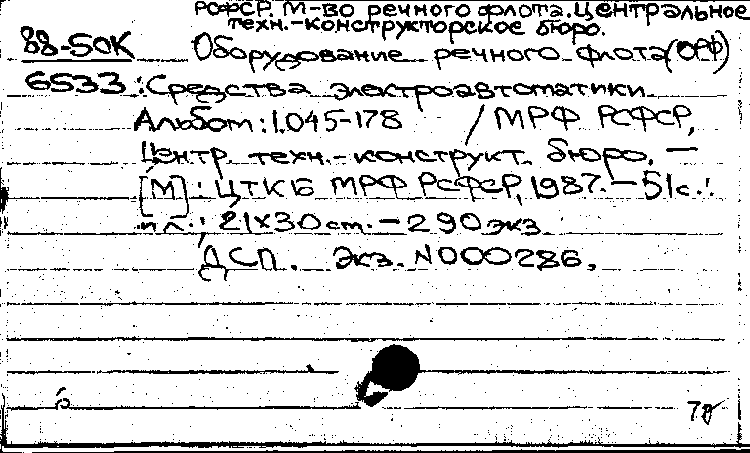 РСФСР. М-во речного флота. Центральное
техн.-конструкторское бюро.
88-50К Оборудование речного флота (ОРФ)
6533 : Средства электроавтоматики
Альбом: 1.045-178 / МРФ РСФСР,
Центр. техн.-конструкт. бюро. —
[М]: ЦТКБ МРФ РСФСР, 1987. — 51с.:
ил.; 21х30 cm. — 290 экз.
ДСП. Экз. N000286.
б